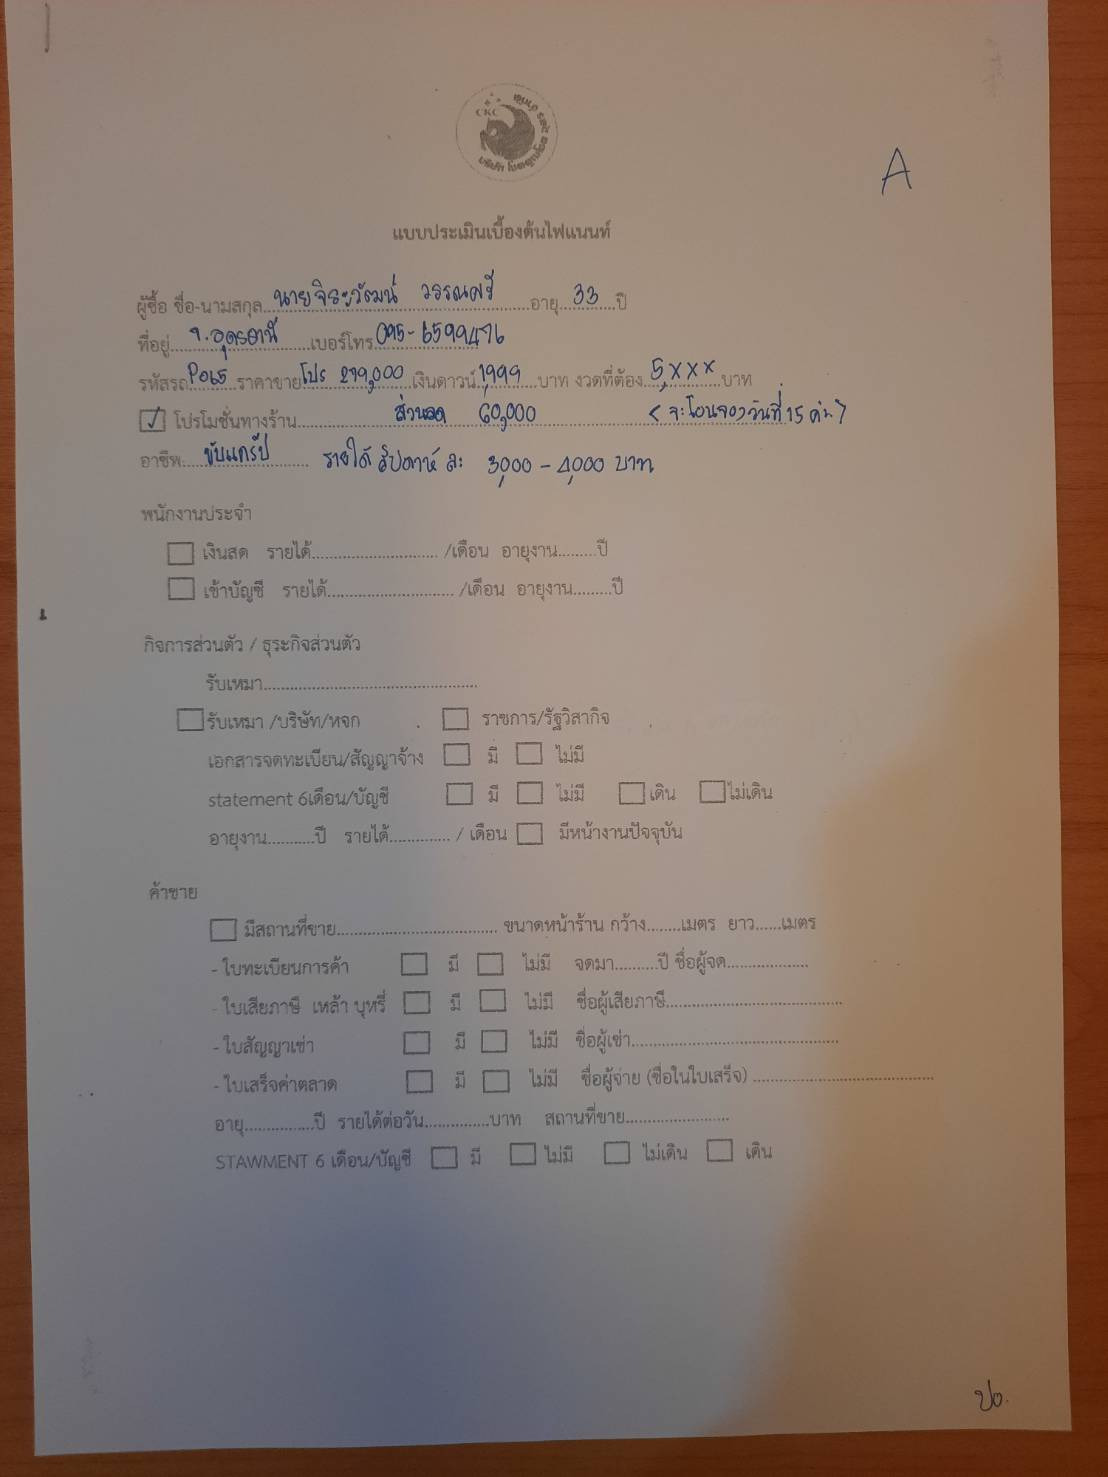 CKC
A
แบบประเมินเบื้องต้นไฟแนนท์
ผู้ซื้อ ชื่อ-นามสกุล นายจิระวัฒน์ วรรณศรี อายุ 33 ปี
ที่อยู่ จ.อุดรธานี เบอร์โทร 095-6599476
รหัสรถ P065 ราคาขาย โปร 279,000 เงินดาวน์ 1,999 บาท งวดที่ต้อง 5,xxx บาท
✓ โปรโมชั่นทางร้าน ส่วนลด 60,000 < จะโอนจองวันที่ 15 ค่ะ >
อาชีพ ขับแกร็ป รายได้ สัปดาห์ ละ 3,000 - 4,000 บาท
พนักงานประจำ
เงินสด รายได้ /เดือน อายุงาน ปี
เข้าบัญชี รายได้ /เดือน อายุงาน ปี
กิจการส่วนตัว / ธุระกิจส่วนตัว
รับเหมา
รับเหมา /บริษัท/หจก ราชการ/รัฐวิสากิจ
เอกสารจดทะเบียน/สัญญาจ้าง มี ไม่มี
statement 6เดือน/บัญชี มี ไม่มี เดิน ไม่เดิน
อายุงาน ปี รายได้ / เดือน มีหน้างานปัจจุบัน
ค้าขาย
มีสถานที่ขาย ขนาดหน้าร้าน กว้าง เมตร ยาว เมตร
- ใบทะเบียนการค้า มี ไม่มี จดมา ปี ชื่อผู้จด
- ใบเสียภาษี เหล้า บุหรี่ มี ไม่มี ชื่อผู้เสียภาษี
- ใบสัญญาเช่า มี ไม่มี ชื่อผู้เช่า
- ใบเสร็จค่าตลาด มี ไม่มี ชื่อผู้จ่าย (ชื่อในใบเสร็จ)
อายุ ปี รายได้ต่อวัน บาท สถานที่ขาย
STAWMENT 6 เดือน/บัญชี มี ไม่มี ไม่เดิน เดิน